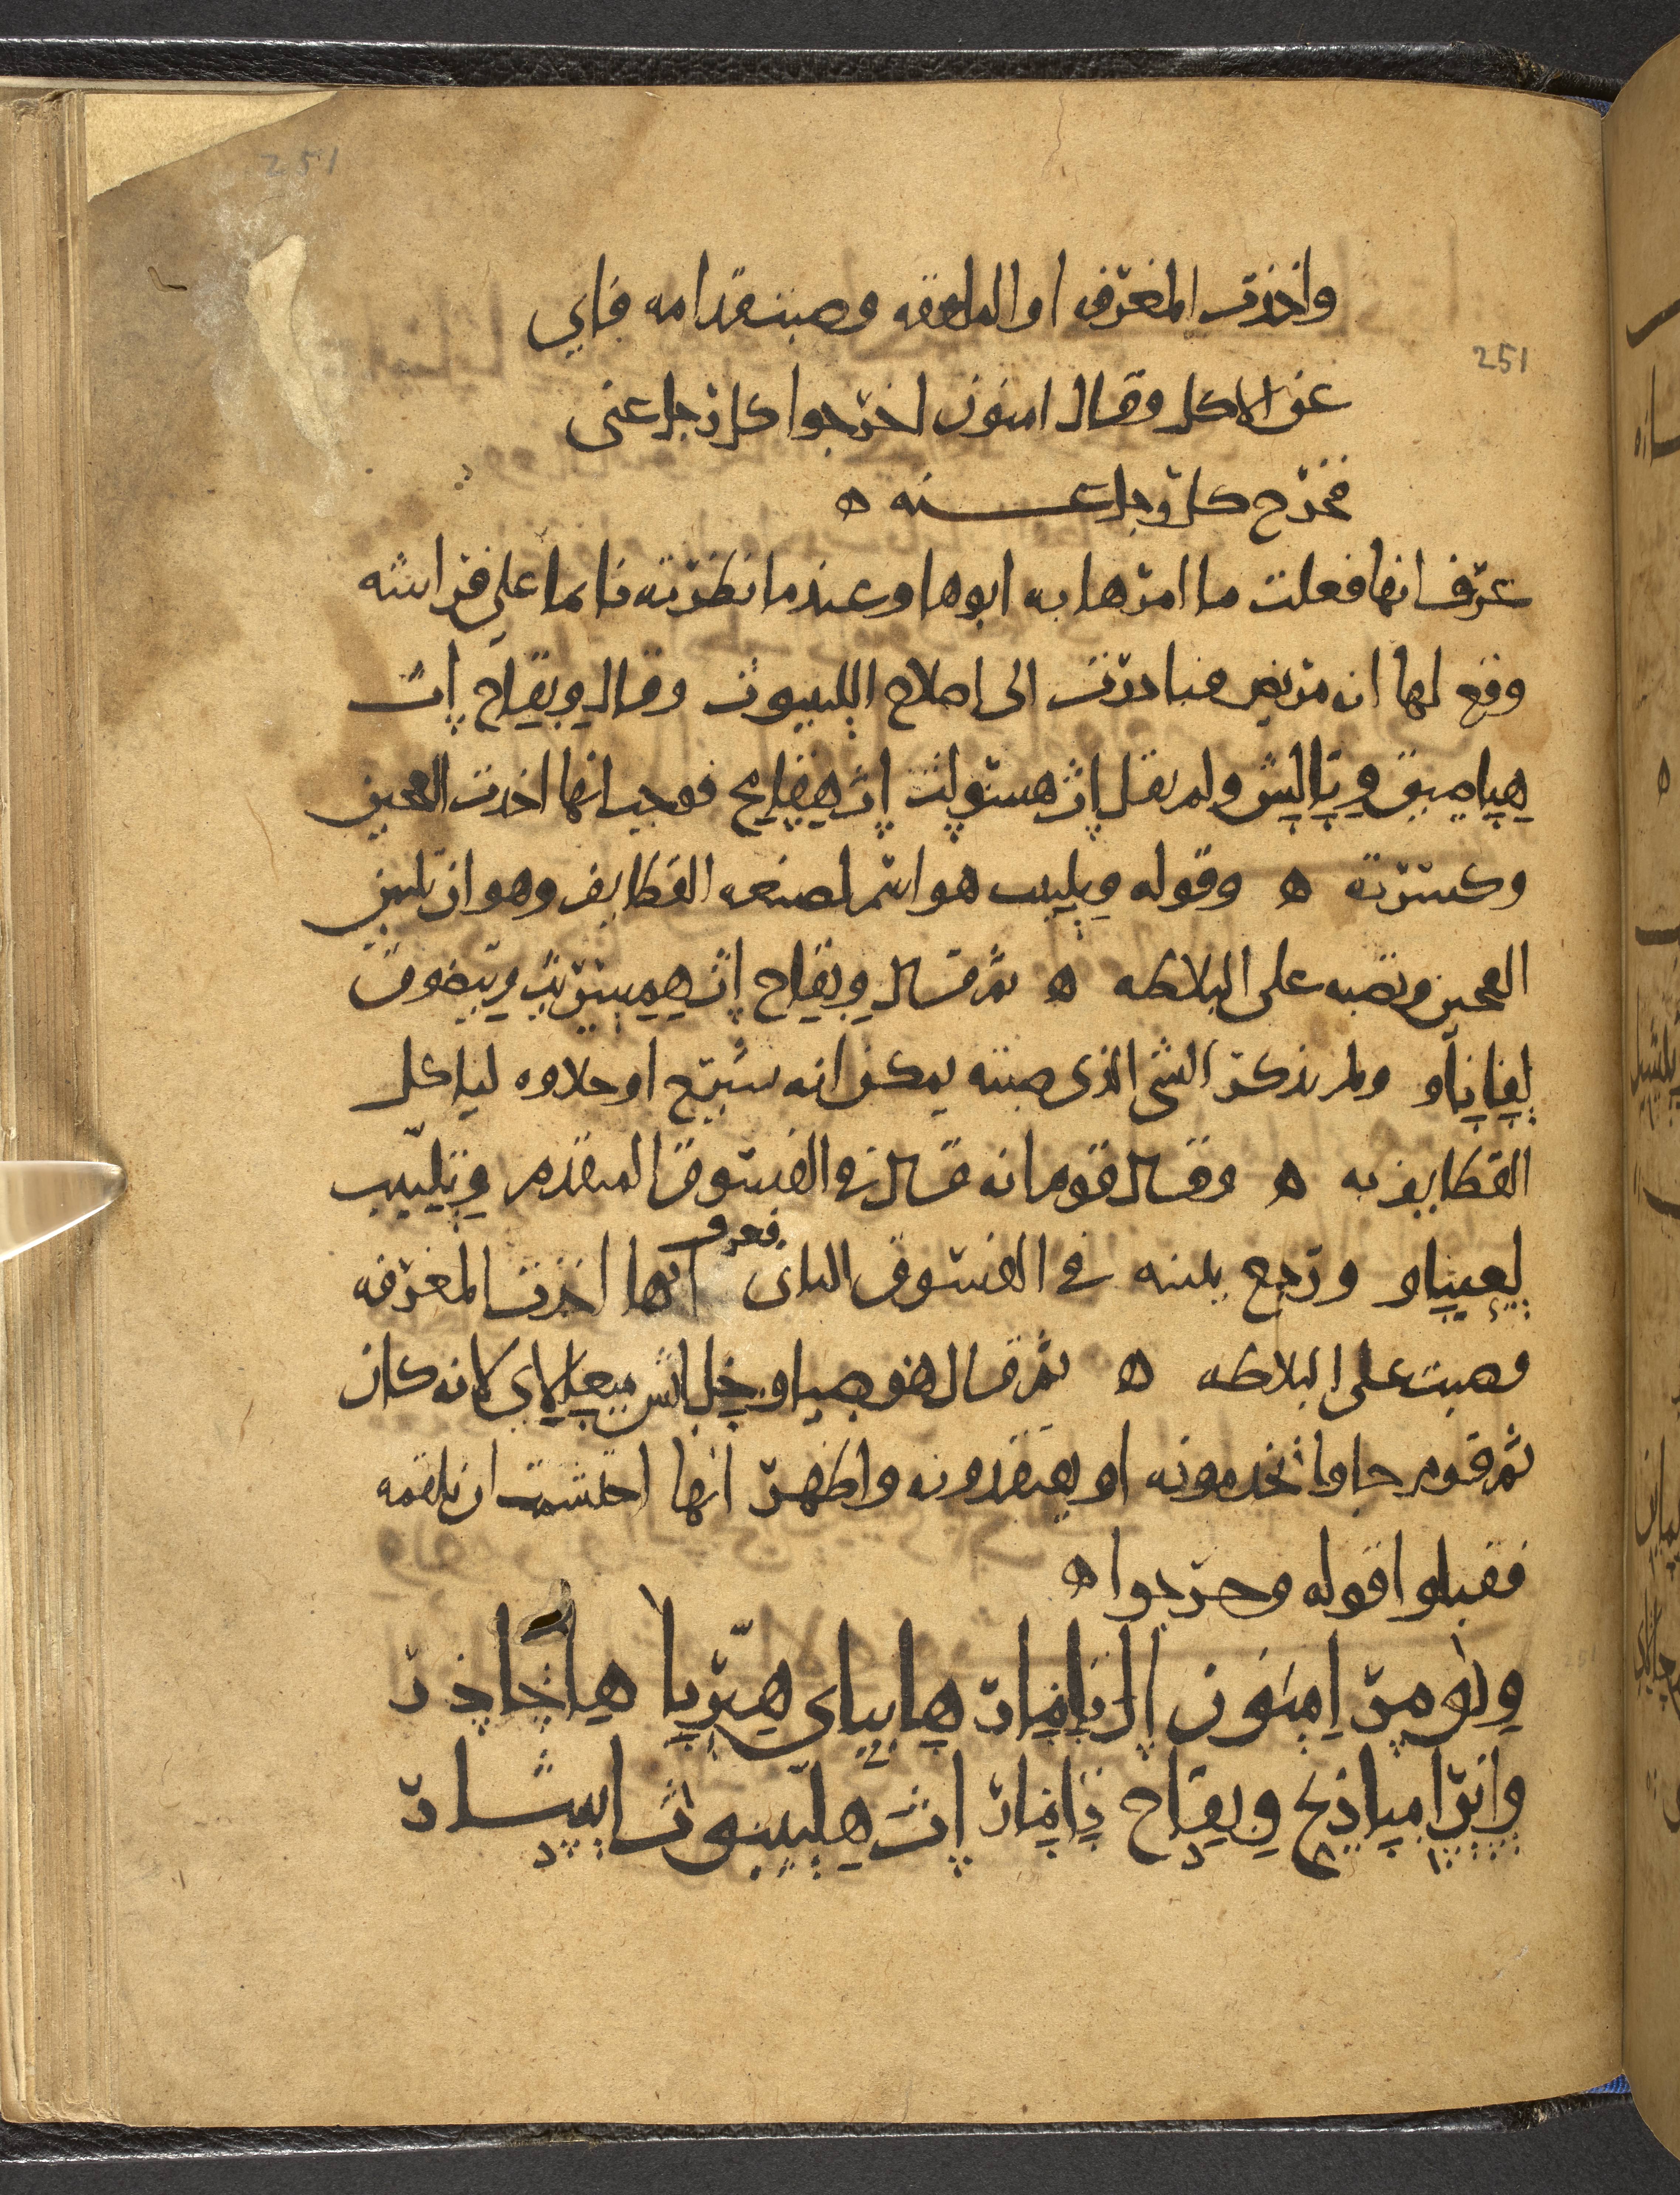 251
واخذت المغرف او الملعقه وصبت قدامه فابي
251
عن الاكل وقال امنون اخرجوا كل رجل عني
فخرج كل رجل عنه ه
عرف انها فعلت ما امرها به ابوها وعندما نظرته نايما على فراشه
وقع لها انه مريض فبادرت الى اصلاح اللبيبوث وقال ويقاح اث
هباصيق وتالش ولم يقل اث هسولث اث هيقايح فوجب انها اخذت العجين
وكسرته ه وقوله وتلبب هو اسم لصنعه القطايف وهو ان تلين
العجين وتصبه على البلاطه ه ثم قال ويقاح اث همسريث ويتصوق
لفاناو ولم يذكر الشي الذي صبته يمكن انه سيرج او حلاوه لياكل
القطايف به ه وقال قوم انه قال في الفسوق المتقدم وتلبيب
لعيناو ورجع بلينه في الفسوق الثاني فعرف انها اخذت المغرفه
وصبت على البلاطه ه ثم قال هوصياو خل ايش ميعلاي لانه كان
ثم قوم جاوا يخدمونه او يفتقدونه واظهر انها احتشمت ان تلقمه
فقبلوا قوله وخرجوا ه
ويومر امنون ال تامار هابياي هبريا هاحاذر
وابرا مياذيخ ويقاح تامار اث هلبيبوث اشر